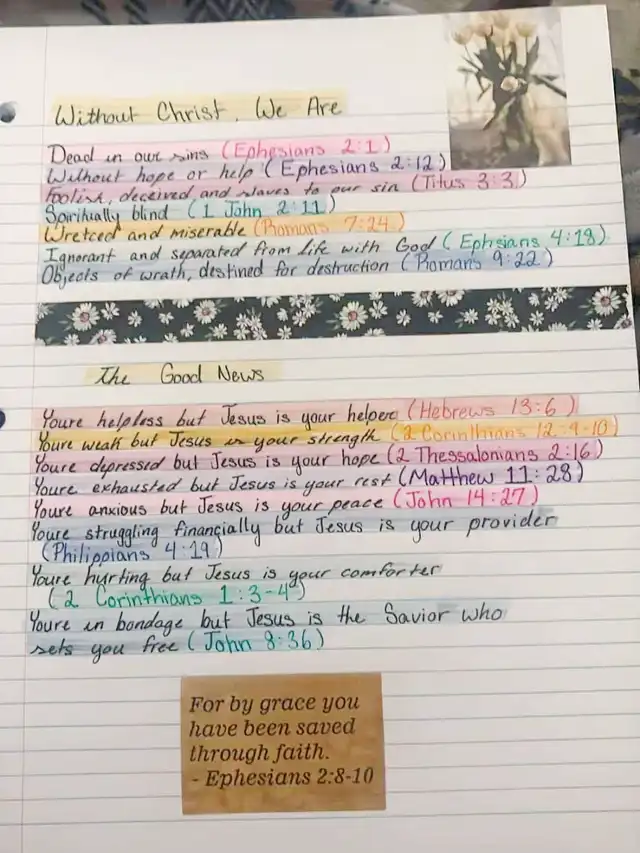 Without Christ, We Are
Dead in our sins (Ephesians 2:1)
Without hope or help (Ephesians 2:12)
Foolish, deceived and slaves to our sin (Titus 3:3)
Spiritually blind (1 John 2:11)
Wretced and miserable (Romans 7:24)
Ignorant and separated from life with God (Ephsians 4:18)
Objects of wrath, destined for destruction (Romans 9:22)
The Good News
Youre helpless but Jesus is your helper (Hebrews 13:6)
Youre weak but Jesus is your strength (2 Corinthians 12:9-10)
Youre depressed but Jesus is your hope (2 Thessalonians 2:16)
Youre exhausted but Jesus is your rest (Matthew 11:28)
Youre anxious but Jesus is your peace (John 14:27)
Youre struggling financially but Jesus is your provider
(Philippians 4:19)
Youre hurting but Jesus is your comforter
(2 Corinthians 1:3-4)
Youre in bondage but Jesus is the Savior who
sets you free (John 8:36)
For by grace you
have been saved
through faith.
- Ephesians 2:8-10